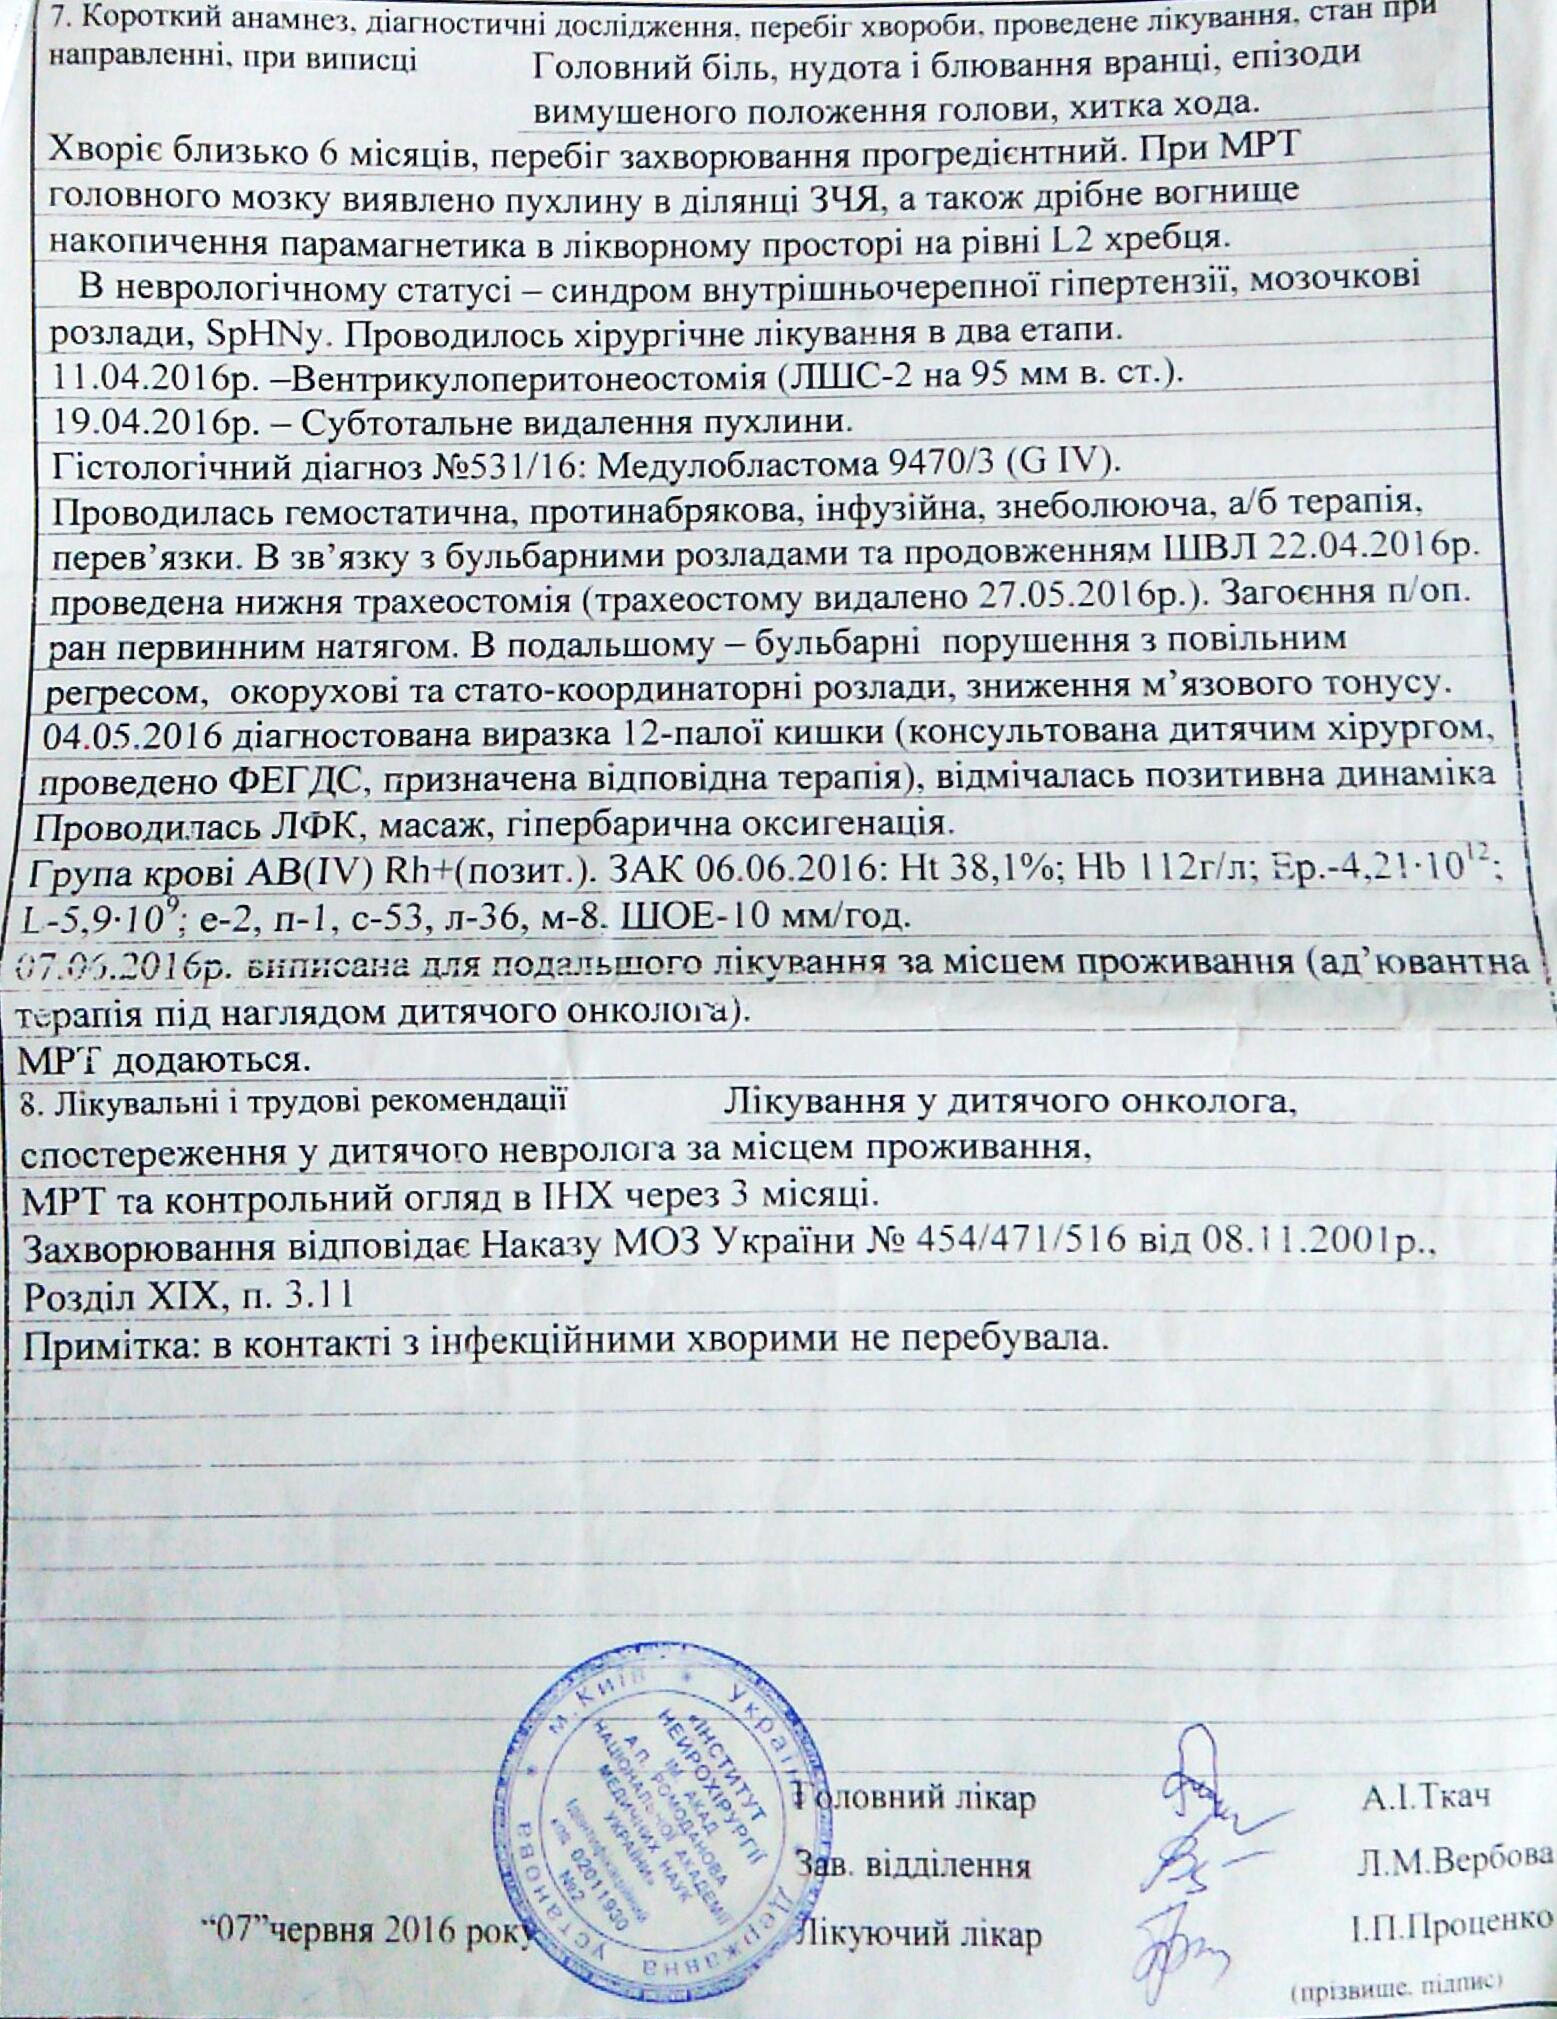 7. Короткий анамнез, діагностичні дослідження, перебіг хвороби, проведене лікування, стан при
направленні, при виписці Головний біль, нудота і блювання вранці, епізоди
вимушеного положення голови, хитка хода.
Хворіє близько 6 місяців, перебіг захворювання прогредієнтний. При МРТ
головного мозку виявлено пухлину в ділянці ЗЧЯ, а також дрібне вогнище
накопичення парамагнетика в лікворному просторі на рівні L2 хребця.
В неврологічному статусі – синдром внутрішньочерепної гіпертензії, мозочкові
розлади, SpHNy. Проводилось хірургічне лікування в два етапи.
11.04.2016р. –Вентрикулоперитонеостомія (ЛШС-2 на 95 мм в. ст.).
19.04.2016р. – Субтотальне видалення пухлини.
Гістологічний діагноз №531/16: Медулобластома 9470/3 (G IV).
Проводилась гемостатична, протинабрякова, інфузійна, знеболююча, а/б терапія,
перев’язки. В зв’язку з бульбарними розладами та продовженням ШВЛ 22.04.2016р.
проведена нижня трахеостомія (трахеостому видалено 27.05.2016р.). Загоєння п/оп.
ран первинним натягом. В подальшому – бульбарні порушення з повільним
регресом, окорухові та стато-координаторні розлади, зниження м’язового тонусу.
04.05.2016 діагностована виразка 12-палої кишки (консультована дитячим хірургом,
проведено ФЕГДС, призначена відповідна терапія), відмічалась позитивна динаміка
Проводилась ЛФК, масаж, гіпербарична оксигенація.
Група крові АВ(IV) Rh+(позит.). ЗАК 06.06.2016: Ht 38,1%; Hb 112г/л; Ер.-4,21·10¹²;
L-5,9·10⁹; е-2, п-1, с-53, л-36, м-8. ШОЕ-10 мм/год.
07.06.2016р. виписана для подальшого лікування за місцем проживання (ад’ювантна
терапія під наглядом дитячого онколога).
МРТ додаються.
8. Лікувальні і трудові рекомендації Лікування у дитячого онколога,
спостереження у дитячого невролога за місцем проживання,
МРТ та контрольний огляд в ІНХ через 3 місяці.
Захворювання відповідає Наказу МОЗ України № 454/471/516 від 08.11.2001р.,
Розділ XIX, п. 3.11
Примітка: в контакті з інфекційними хворими не перебувала.
м. Київ * Україна * Державна установа *
«ІНСТИТУТ
НЕЙРОХІРУРГІЇ
ІМ. АКАД.
А.П. РОМОДАНОВА
НАЦІОНАЛЬНОЇ АКАДЕМІЇ
МЕДИЧНИХ НАУК
УКРАЇНИ»
Ідентифікаційний
код 02011930
№2
Головний лікар А.І.Ткач
Зав. відділення Л.М.Вербова
“07”червня 2016 року Лікуючий лікар І.П.Проценко
(прізвище, підпис)